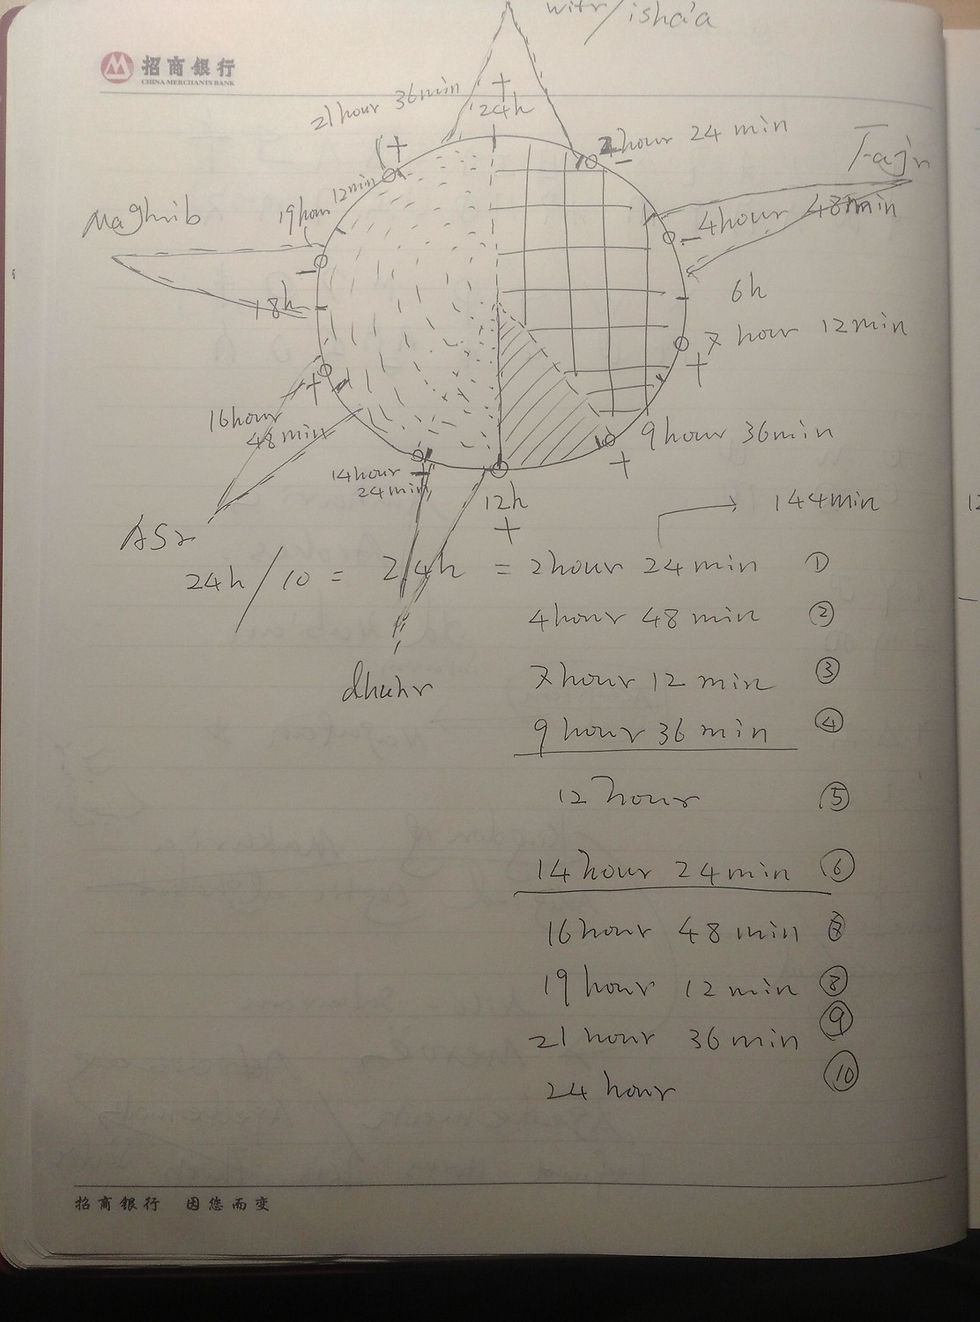 招商銀行
CHINA MERCHANTS BANK
witr/isha'a
21hour 36min
+
24h
2hour 24 min
-
(+
Fajr
19hour 12min
Maghrib
-
4hour 48min
-
18h
6h
7 hour 12min
+
+
16hour
48min
9hour 36min
+
14hour
24min
-
12h
+
144min
ASr
24h/10 = 2.4h = 2hour 24min ①
4hour 48 min ②
dhuhr
7hour 12 min ③
9hour 36 min ④
12 hour ⑤
14hour 24min ⑥
16hour 48 min ⑦
19hour 12 min ⑧
21 hour 36 min ⑨
24 hour ⑩
招商銀行 因您而变